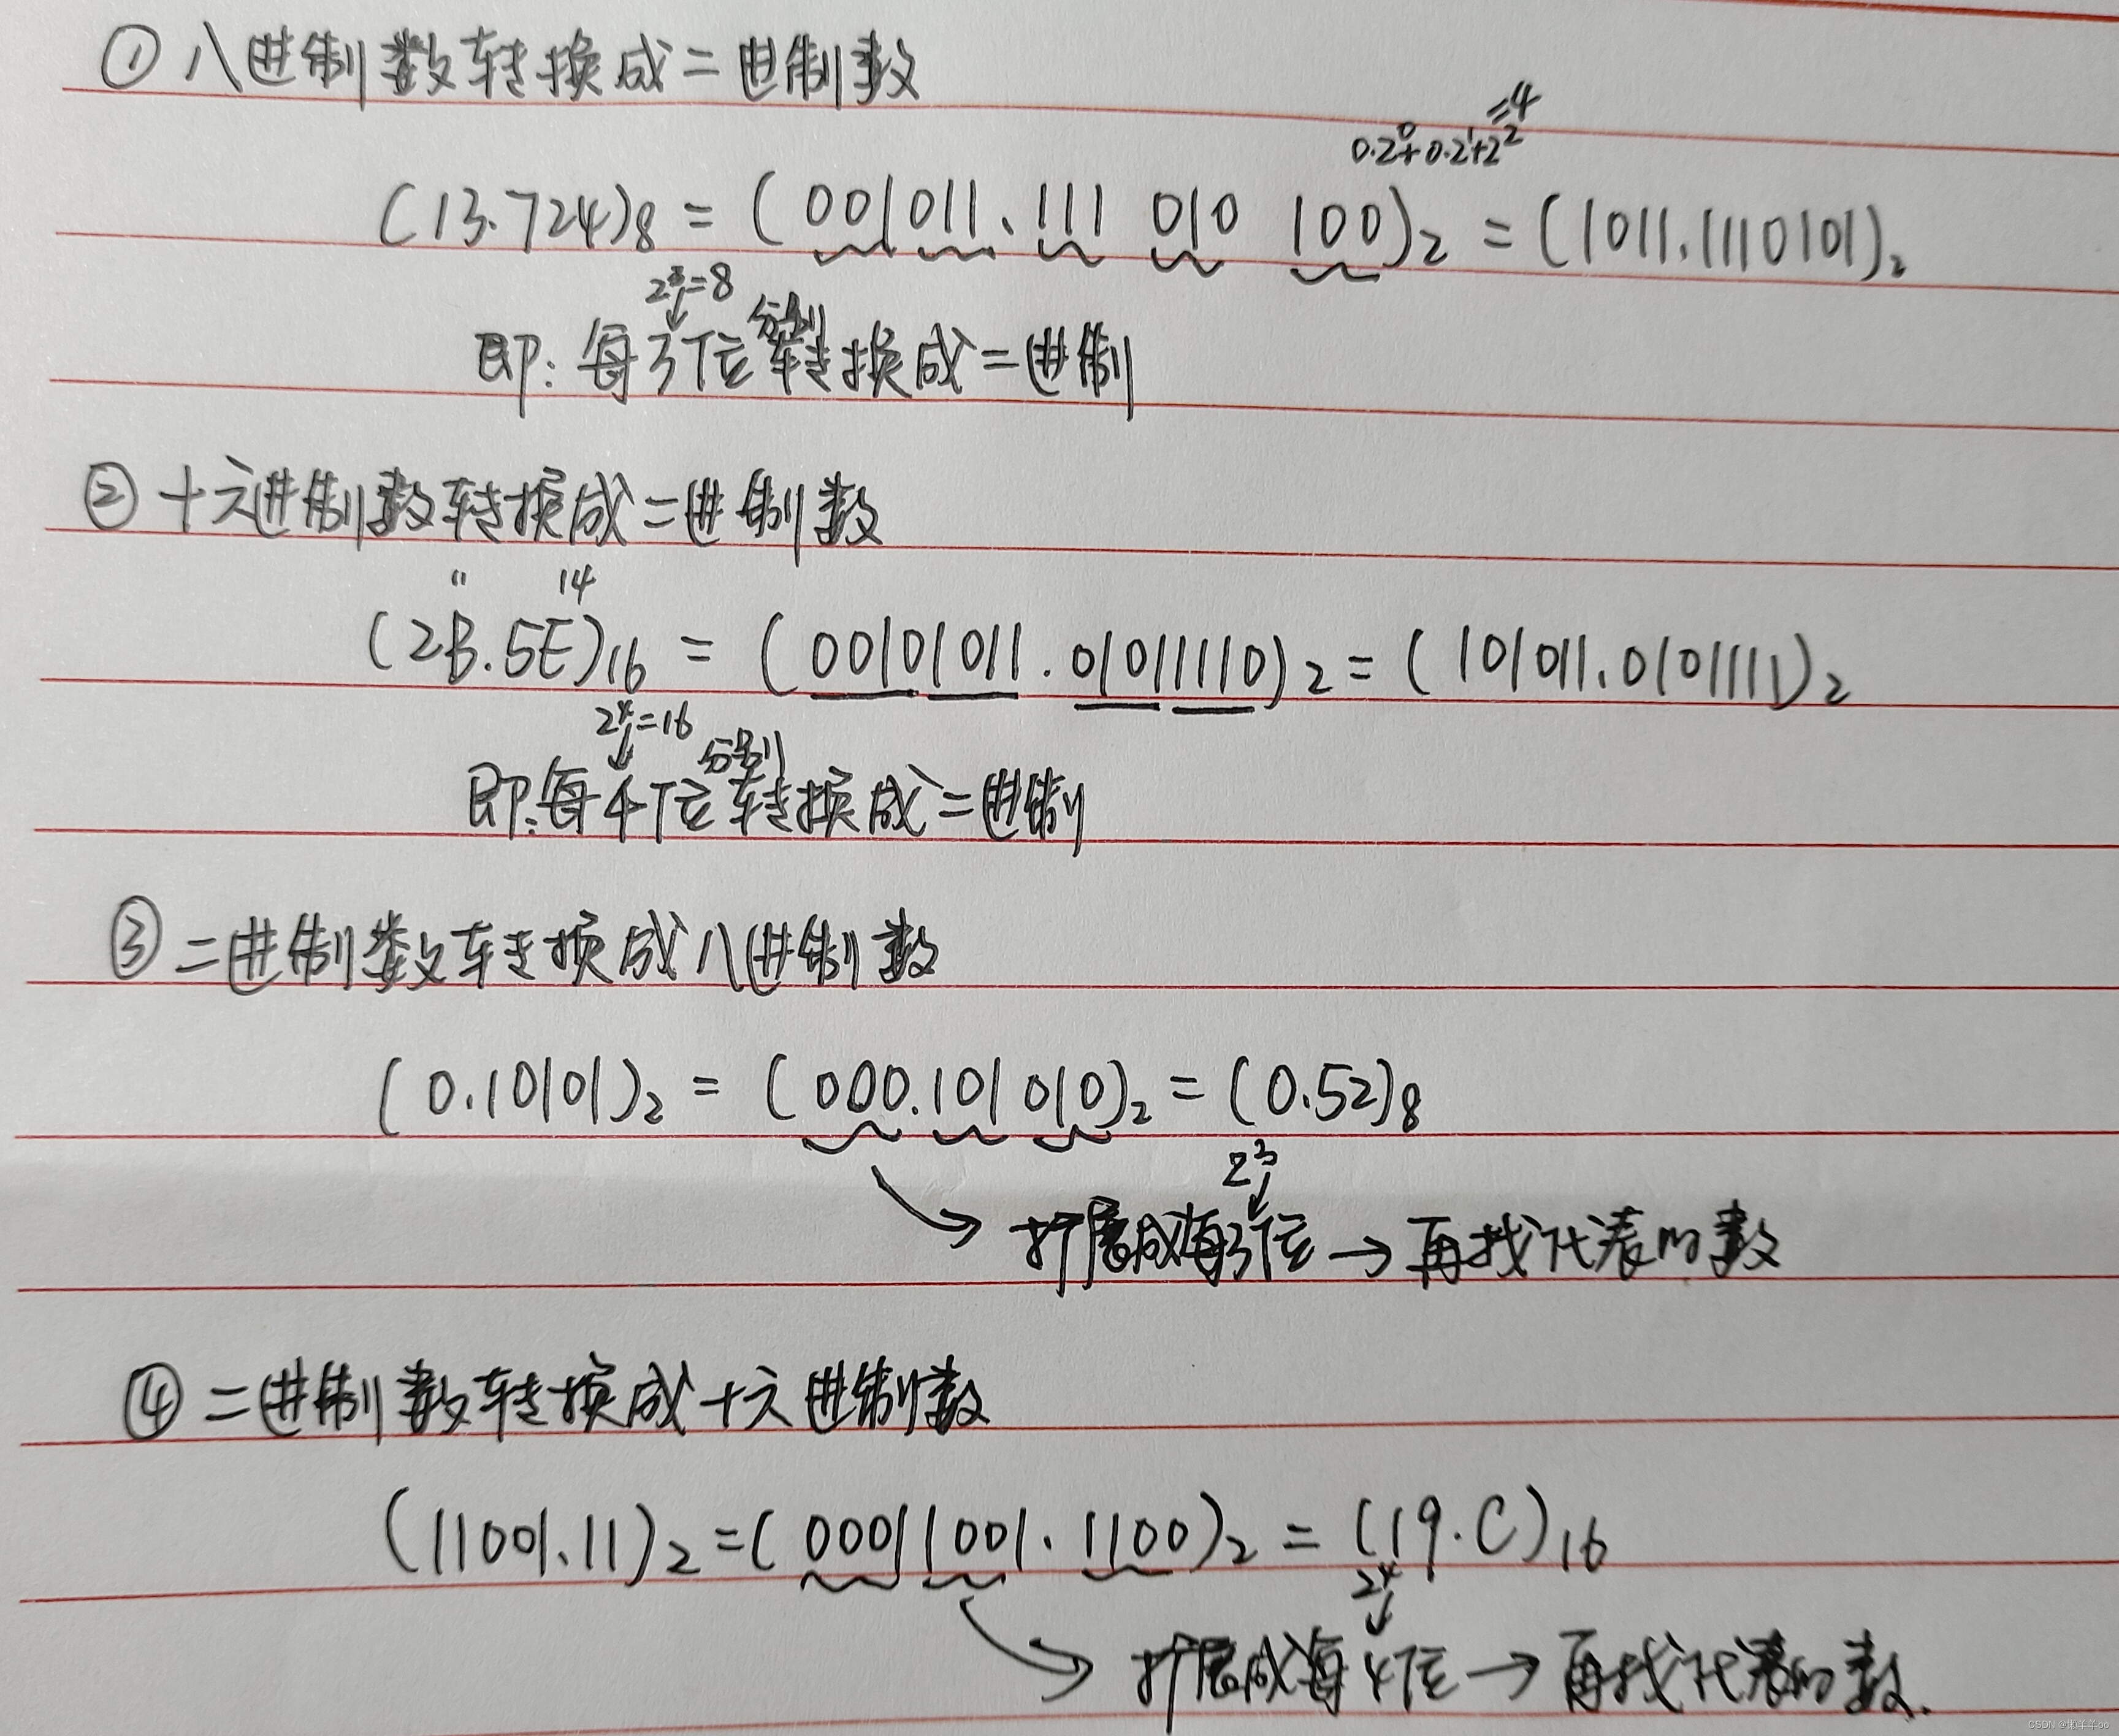 ① 八进制数转换成二进制数
=4
0·2⁰+0·2¹+2²
(13.724)₈ = (001011.111 010 100)₂ = (1011.1110101)₂
2³=8
分别
即: 每3位转换成二进制
② 十六进制数转换成二进制数
11 14
(2B.5E)₁₆ = (00101011.01011110)₂ = (101011.0101111)₂
2⁴=16
分别
即:每4位转换成二进制
③ 二进制数转换成八进制数
(0.10101)₂ = (000.101 010)₂ = (0.52)₈
2³
扩展成每3位 → 再找代表的数
④ 二进制数转换成十六进制数
(11001.11)₂ = (00011001.1100)₂ = (19.C)₁₆
2⁴
扩展成每4位 → 再找代表的数.
CSDN @懒羊羊oo